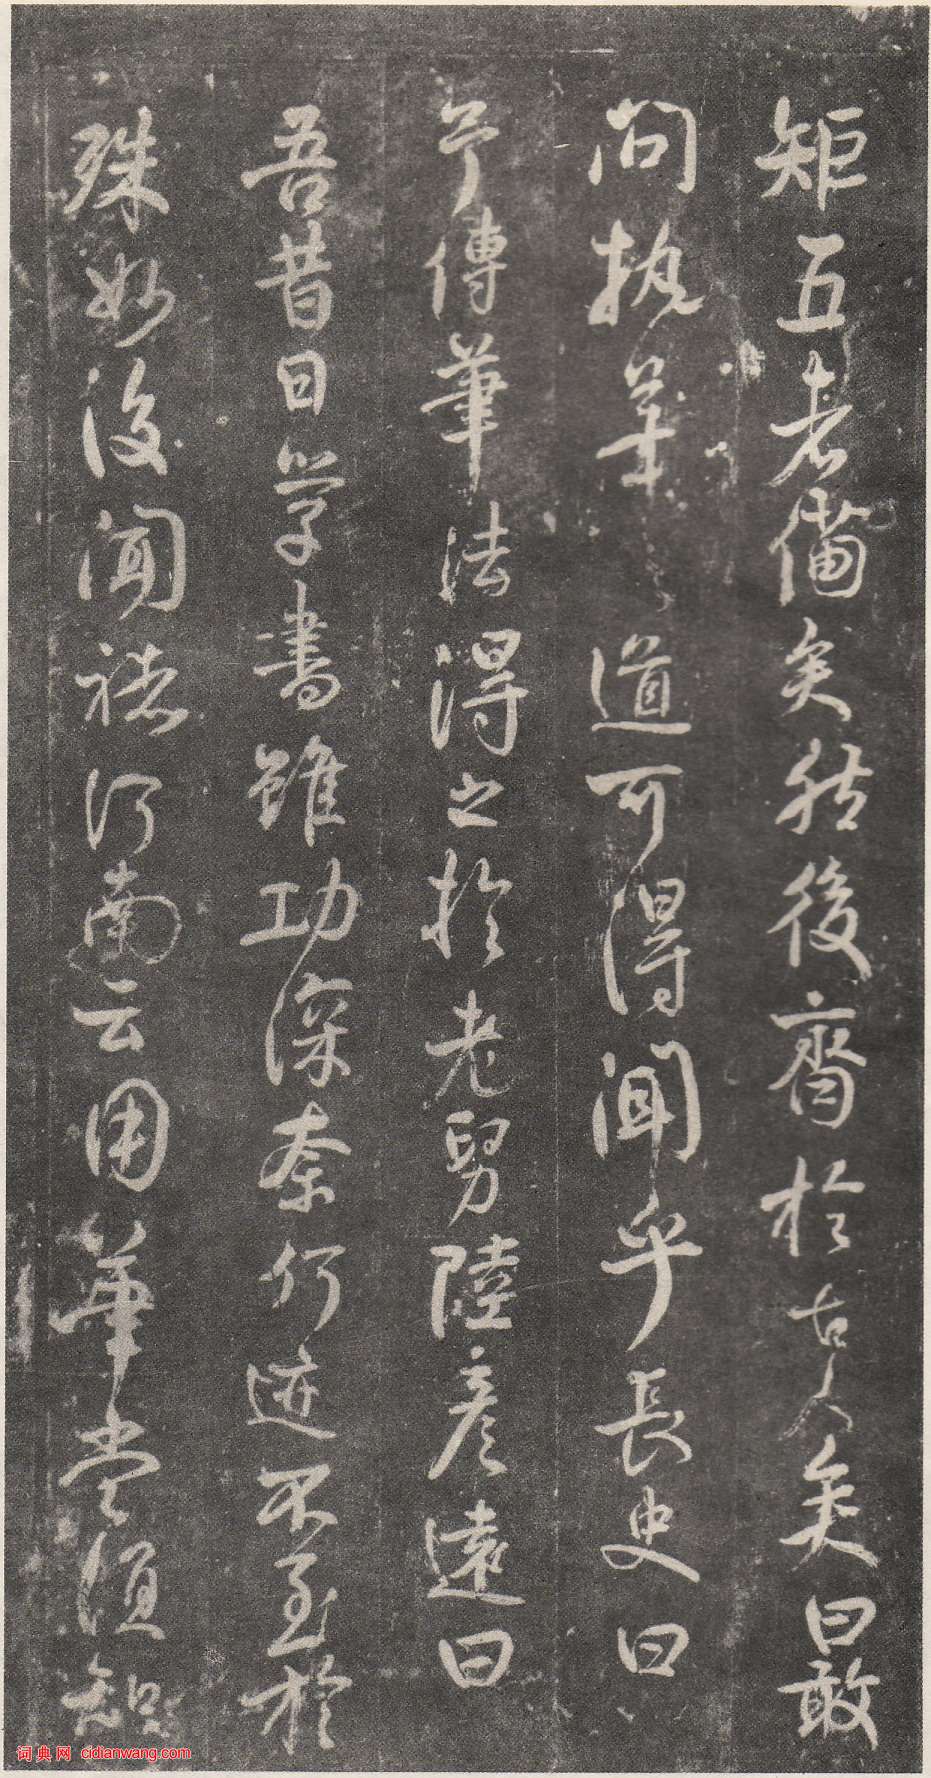 矩五者備矣然後齊於古人矣曰敢
問執筆之道可得聞乎長史曰
予傳筆法得之於老舅陸彥遠曰
吾昔日學書雖功深奈何迹不至於
殊妙後聞褚河南云用筆當須知
词典网 cidianwang.com